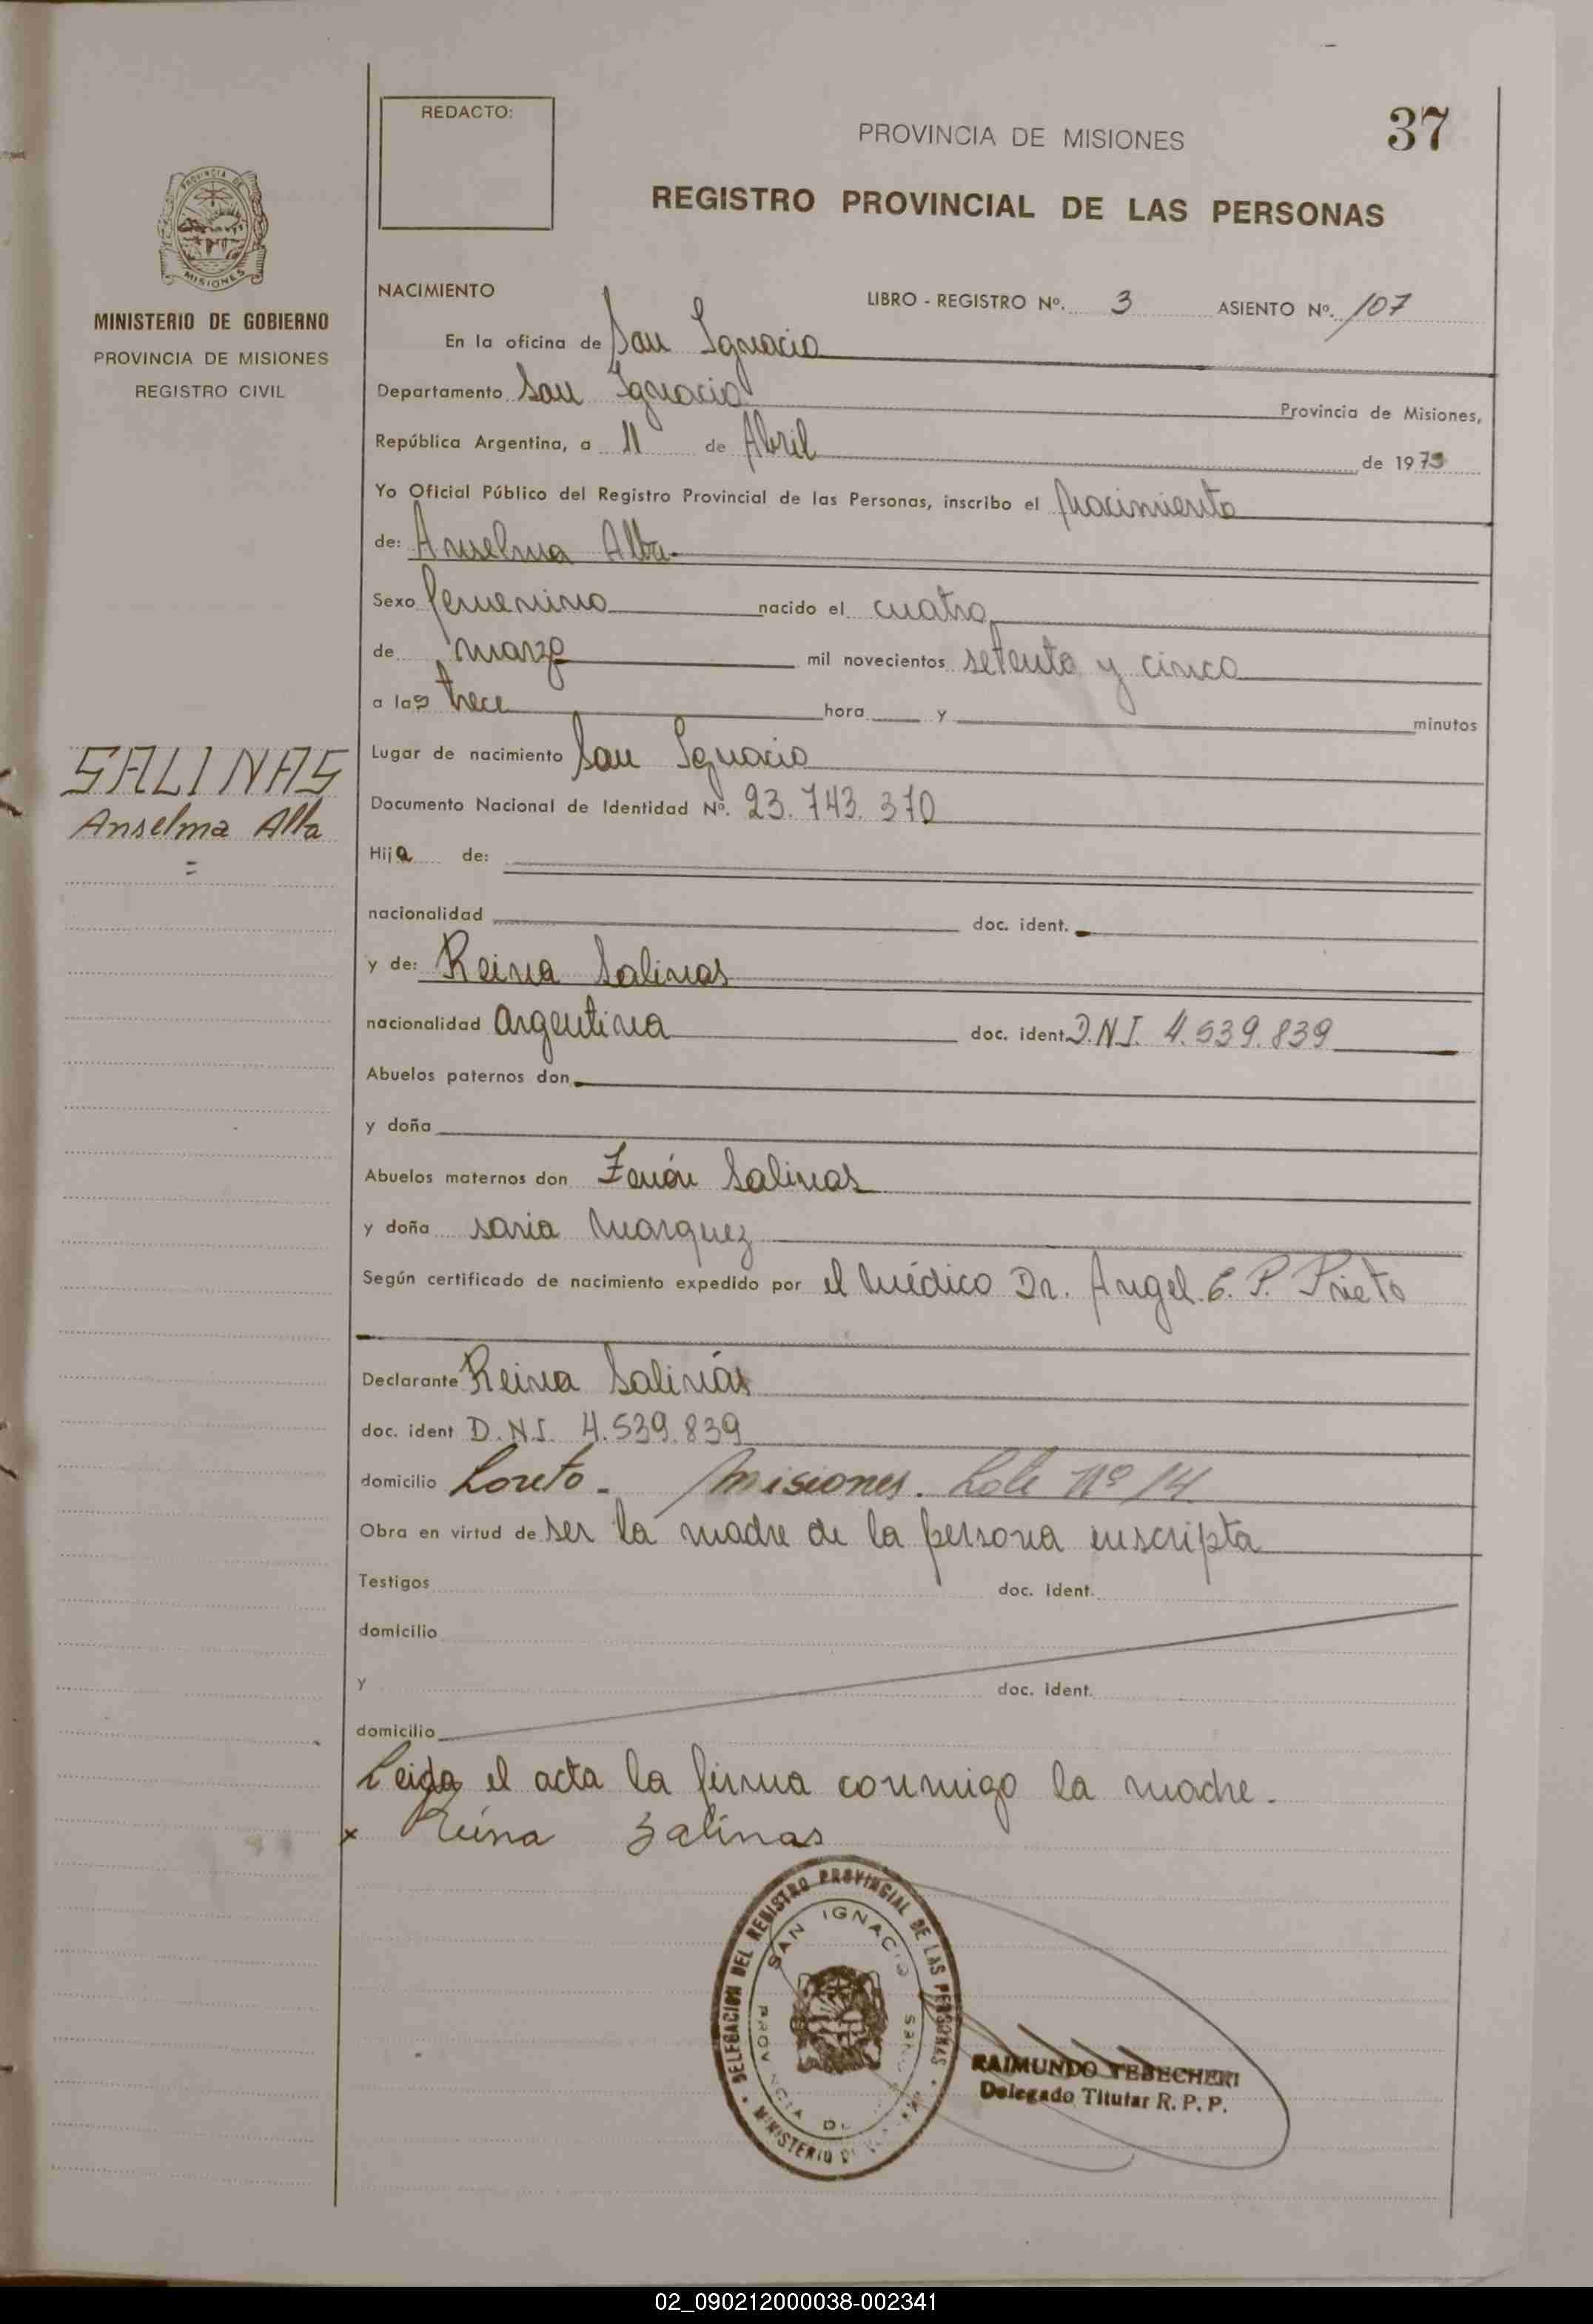 REDACTO:
PROVINCIA DE MISIONES
37
REGISTRO PROVINCIAL DE LAS PERSONAS
PROVINCIA DE
MISIONES
MINISTERIO DE GOBIERNO
PROVINCIA DE MISIONES
REGISTRO CIVIL
NACIMIENTO
LIBRO - REGISTRO Nº. 3 ASIENTO Nº. 107
En la oficina de San Ignacio
Departamento San Ignacio Provincia de Misiones,
República Argentina, a 11 de Abril de 1975
Yo Oficial Público del Registro Provincial de las Personas, inscribo el Nacimiento
de: Anselma Alba
Sexo femenino nacido el cuatro
de marzo mil novecientos setenta y cinco
a las trece hora y minutos
Lugar de nacimiento San Ignacio
SALINAS
Anselma Alba
=
Documento Nacional de Identidad Nº. 23.743.370
Hija de:
nacionalidad doc. ident.
y de: Reina Salinas
nacionalidad argentina doc. ident. D.N.I. 4.539.839
Abuelos paternos don
y doña
Abuelos maternos don Zenón Salinas
y doña saria Marquez
Según certificado de nacimiento expedido por el Médico Dr. Angel E. P. Prieto
Declarante Reina Salinas
doc. ident D.N.I. 4.539.839
domicilio Loreto - Misiones. Lote Nº 14
Obra en virtud de ser la madre de la persona inscripta
Testigos doc. ident.
domicilio
y doc. ident.
domicilio
Leida el acta la firma conmigo la madre.
x Reina Salinas
DELEGACION DEL REGISTRO PROVINCIAL DE LAS PERSONAS
SAN IGNACIO
PROVINCIA DE
MINISTERIO DE
RAIMUNDO TEBECHERI
Delegado Titular R. P. P.
02_090212000038-002341